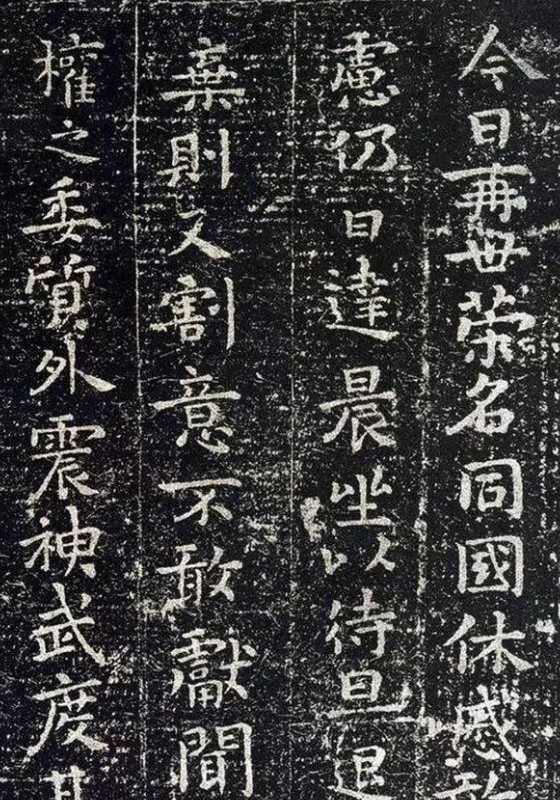 今日再世榮名同國休慼敢
慮仍日達晨坐以待旦退
棄則又割意不敢獻聞
權之委質外震神武度其